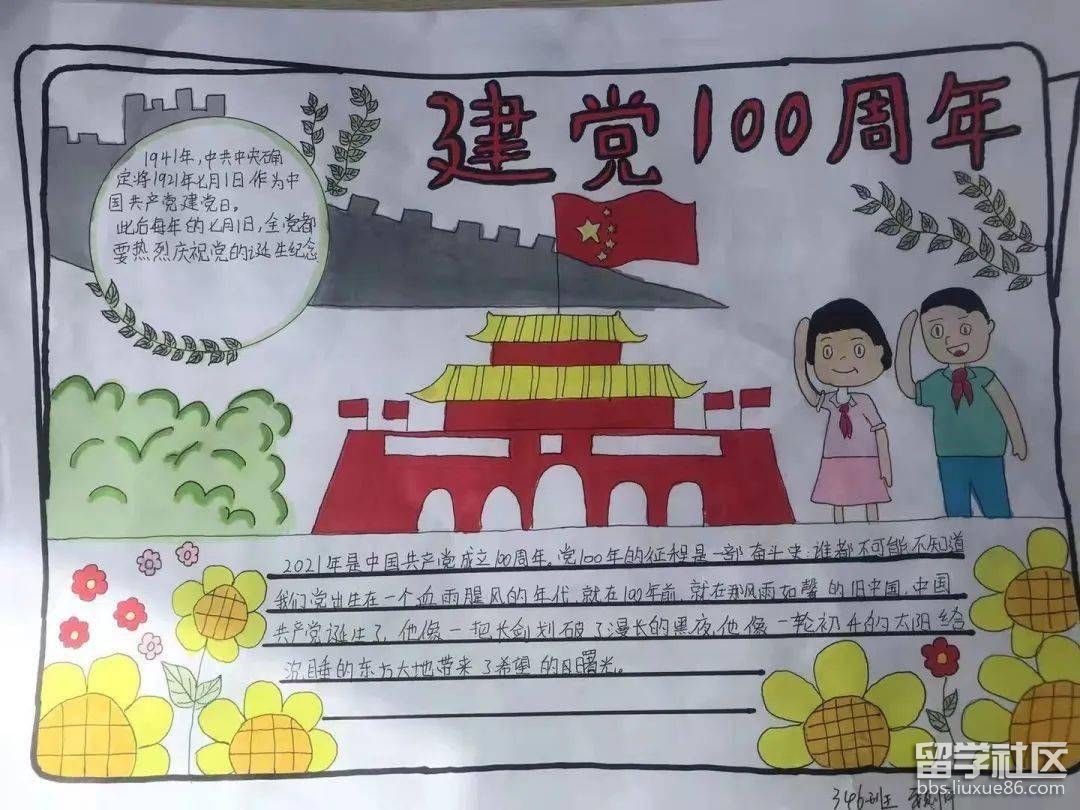 建党100周年
1941年,中共中央确
定将1921年七月1日作为中
国共产党建党日。
此后每年的七月1日,全党都
要热烈庆祝党的诞生纪念
2021年是中国共产党成立100周年。党100年的征程是一部奋斗史.谁都不可能不知道
我们党出生在一个血雨腥风的年代.就在100年前.就在那风雨如磬的旧中国.中国
共产党诞生了.他像一把长剑划破了漫长的黑夜.他像一轮初升的太阳给
沉睡的东方大地带来了希望的曙光。
346班
留学社区
bbs.liuxue86.com